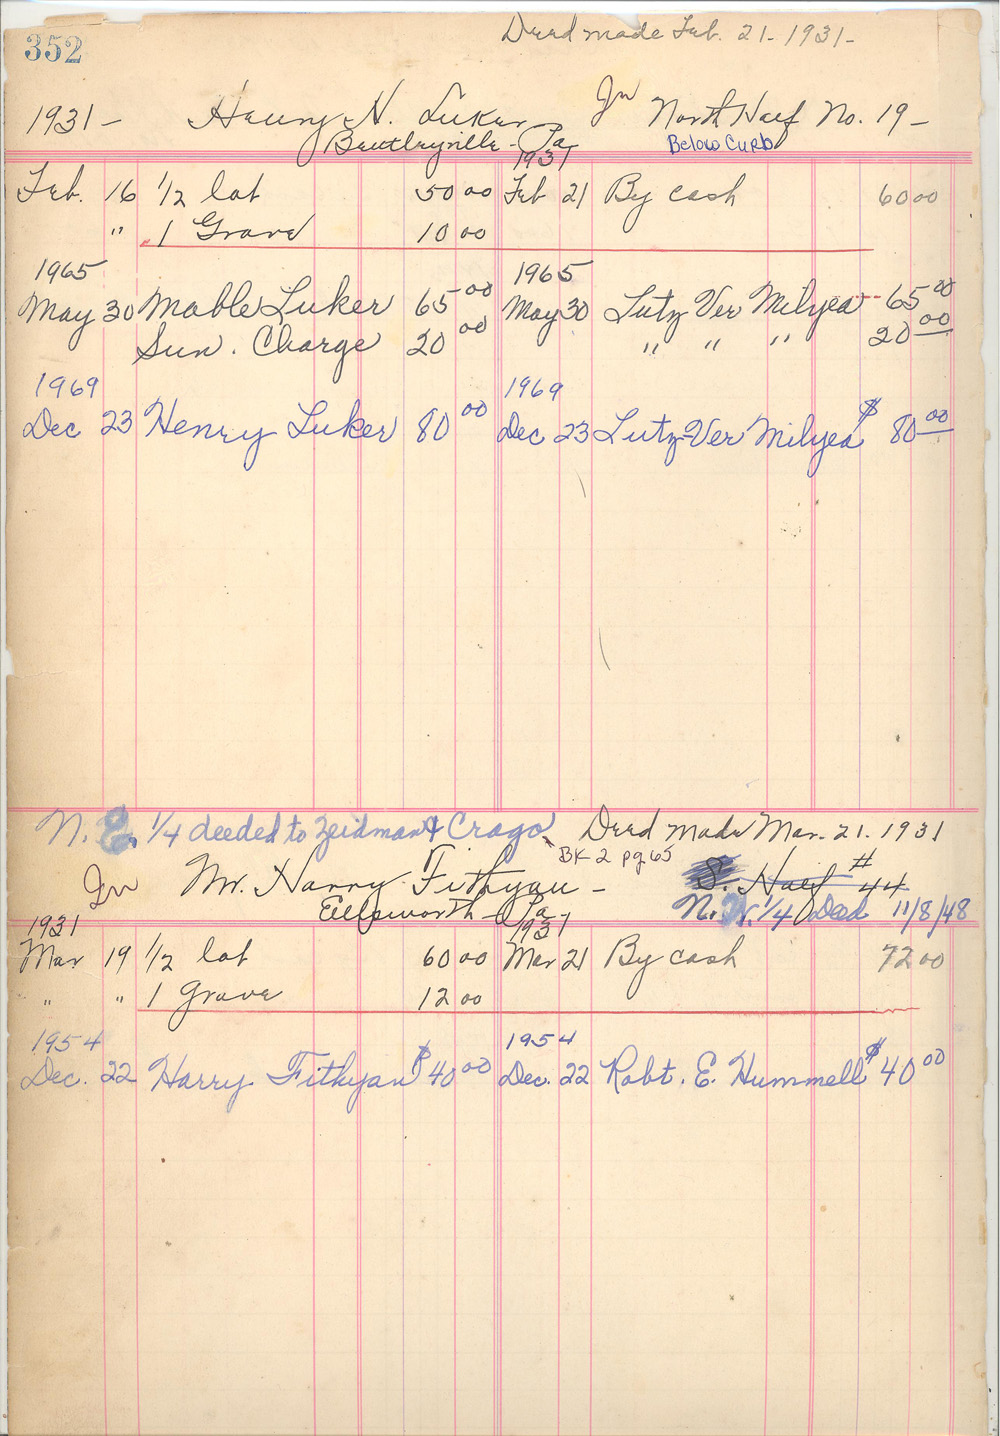 352
Deed made Feb. 21 - 1931 -
1931 - Henry H. Luker In North Half No. 19 -
Bentleyville - Pa Below Curb
1931
Feb. 16 1/2 lot 50 00 Feb 21 By cash 60 00
" 1 Grave 10 00
1965 1965
May 30 Mable Luker 65 00 May 30 Lutz Ver Milyea -- 65 00
Sun. Charge 20 00 " " " 20 00
1969 1969
Dec 23 Henry Luker 80 00 Dec 23 Lutz-Ver Milyea $ 80 00
N. E. 1/4 deeded to Zeidman & Crago Deed made Mar. 21. 1931
BK 2 pg 65
In Mr. Harry Fithyan - S. Half # 44
Ellsworth - Pa N. W. 1/4 Deed 11/8/48
1931 1931
Mar 19 1/2 lot 60 00 Mar 21 By cash 72 00
" " 1 Grave 12 00
1954 1954
Dec. 22 Harry Fithyan $ 40 00 Dec. 22 Robt. E. Hummell $ 40 00